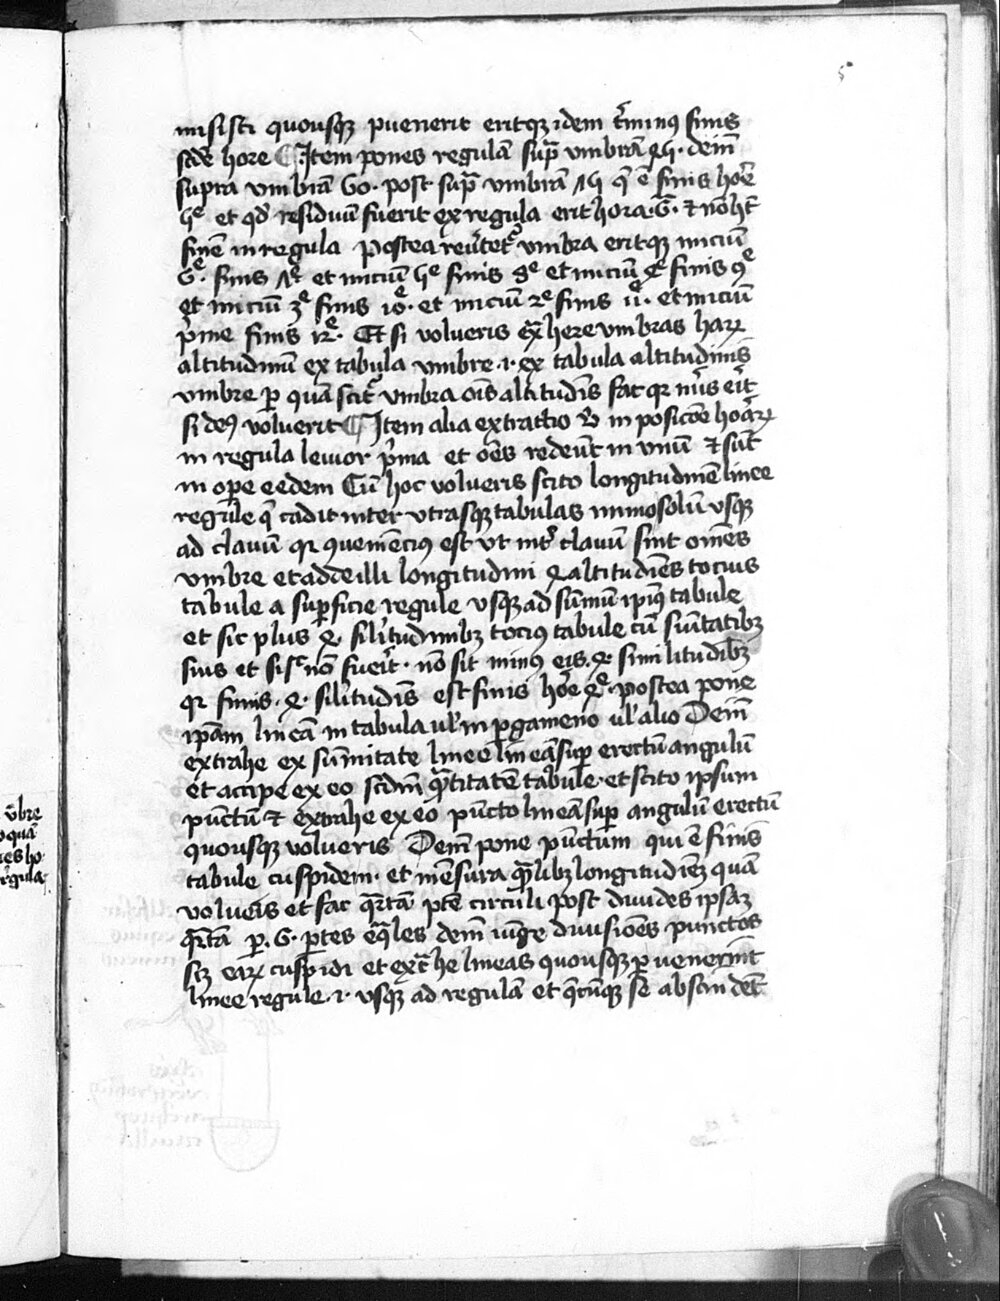 5
misisti quousqꝫ puenerit eritqꝫ idem t̄minꝰ finis
scd̄e hore ¶ Item pones regulā sup̄ umbrā 84. dein̄
supra umbrā 60. post sup̄ umbrā 𝟴4 q̄ ē finis hor̄e
4ᵉ et qd̓ residuū fuerit ex regula erit hora .6. ⁊ nō hꝫ
finē in regula postea reūtet᷑ umbra eritqꝫ iniciū
6ᵉ. finis 7ᵉ et iniciū 4ᵉ finis 8ᵉ et iniciū 4ᵉ finis 9ᵉ
et iniciū 3ᵉ finis 10ᵉ. et iniciū 2ᵉ finis 11ᵉ. et iniciū
p̄me finis 12ᵉ. Et si volueris ext̄here umbras haꝝ
altitudinū ex tabula umbre .i. ex tabula altitudinis
umbre ꝑ quā scit᷑ umbra oīs altitudīs fac qr nūs erit
si deꝰ voluerit ¶ Item alia extractio in posicōe horaꝝ
in regula leuior p̄ma et oēs redeūt in unū ⁊ sūt
in oꝑe eedem Cū hoc volueris scito longitudinē linee
regule q̄ cadit inter utrasqꝫ tabulas immosolū usqꝫ
ad clauū qr queniēcius est ut int̄ clauū sint omēs
umbre et adde illi longitudini 4 altitudīes tocius
tabule a suꝑficie regule usqꝫ ad sūmū ipiꝰ tabule
et sic plus 4 sil̄itudinibꝫ tociꝰ tabule cū sūitatibꝫ
suis et si sic nō fuerit. nō sit minꝰ eis .4. similitudibꝫ
qr finis .4. sil̄itudīs est finis hor̄e 4ᵉ. postea pone
ip̄am lineā in tabula ul̓ in ꝑgameno ul̓ alio Dein̄
extrahe ex sūmitate linee lineā suꝑ erectū angulū
et accipe ex eo scdm̄ q̄titatē tabule. et scito ipsum
pūctū ⁊ extrahe ex eo pūcto lineā suꝑ angulū erectū
quousqꝫ volueris Dein̄ pone pūctum qui ē finis
tabule cuspidem. et mēsura q̄libꝫ longitudīeꝫ quā
volueis et fac q̄rtā ꝑtē circuli post diuides ipsaꝫ
q̄rtā ꝑ .6. ꝑtes eq̄les dein̄ iūge diuisiōes punctos
scꝫ eaꝝ cuspidi et ext̄he lineas quousqꝫ ꝑuenerint
linee regule .i. usqꝫ ad regulā et q̄cūqꝫ se abscindēt
ūbre
quā
es ho
rgula